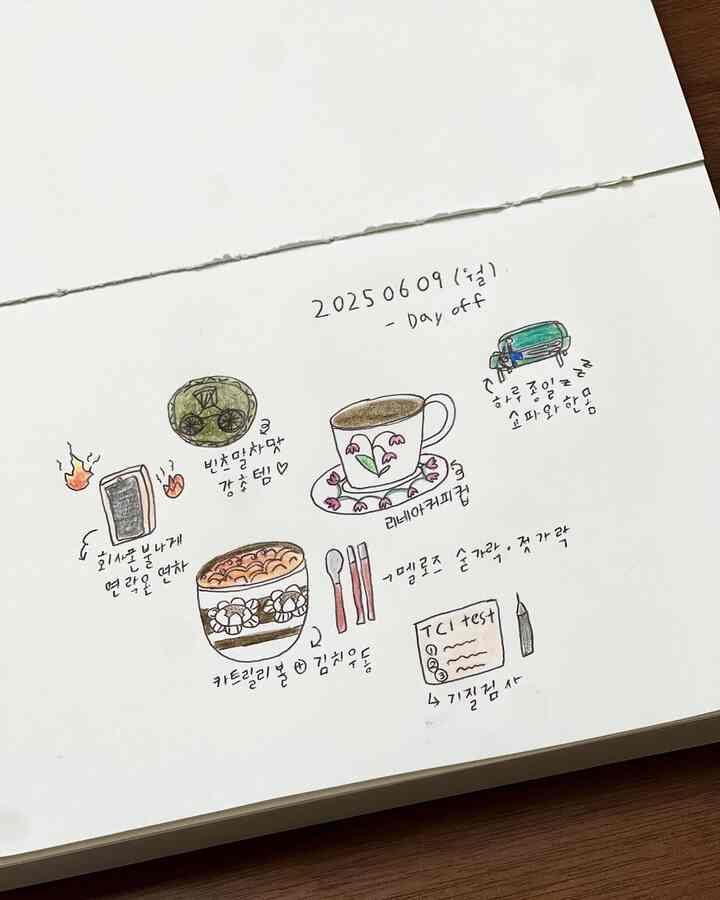 20250609 (월)
- Day off
하루종일 zzz
쇼파와 한몸
빈츠말차맛
강츄템♡
리네아커피컵
회사폰불나게
연락온 연차
→멜로즈 숟가락·젓가락
TCI test
①
②
③
카트릴리볼 ⊕ 김치우동
↳ 기질검사